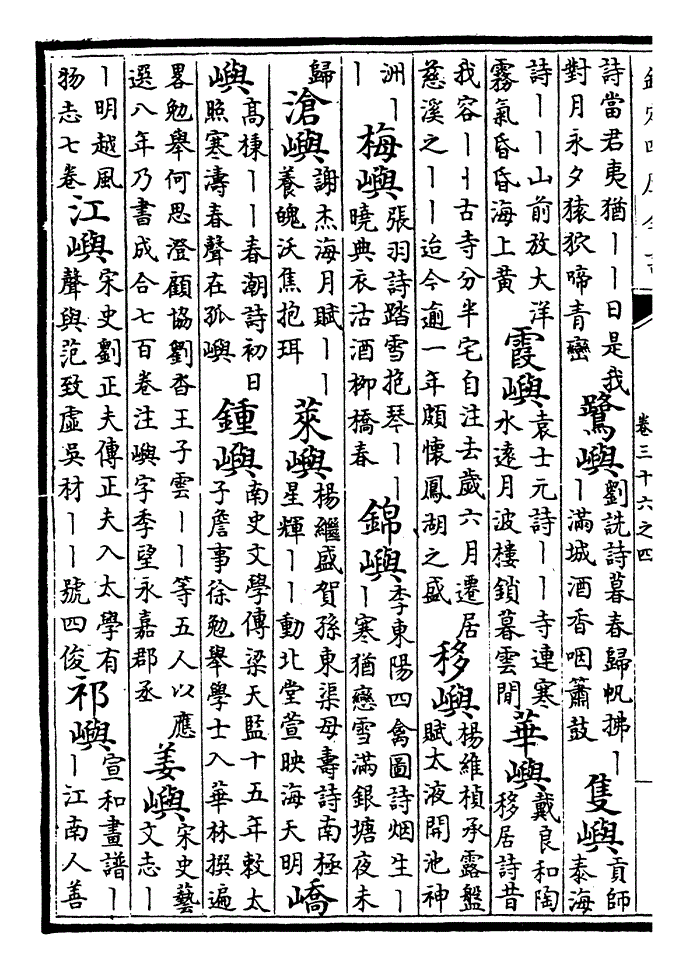 欽定四庫全書 卷三十六之四
詩當君夷猶丨丨日是我對月永夕猿狖啼青巒 鷺嶼 劉詵詩暮春歸帆拂丨丨滿城酒香咽簫鼓 隻嶼 貢師泰海
詩丨丨山前放大洋霧氣昏昏海上黃 霞嶼 袁士元詩丨丨寺連寒水遠月波樓鎖暮雲間 華嶼 戴良和陶移居詩昔
我容丨丨古寺分半宅自注去歲六月遷居慈溪之丨丨迨今逾一年頗懷鳳湖之盛 移嶼 楊維楨承露盤賦太液開池神
洲丨丨 梅嶼 張羽詩踏雪抱琴丨丨曉典衣沽酒柳橋春 錦嶼 李東陽四禽圖詩烟生丨丨寒猶戀雪滿銀塘夜未
歸 滄嶼 謝杰海月賦丨丨養魄沃焦抱珥 萊嶼 楊繼盛賀孫東渠母壽詩南極星輝丨丨動北堂萱映海天明 嶠
嶼 高棟丨丨春潮詩初日照寒濤春聲在孤嶼 鍾嶼 南史文學傳梁天監十五年敕太子詹事徐勉舉學士入華林撰遍
畧勉舉何思澄顧協劉杳王子雲丨丨等五人以應選八年乃書成合七百卷注嶼字季望永嘉郡丞 姜嶼 宋史藝文志丨
丨明越風物志七卷 江嶼 宋史劉正夫傳正夫入太學有聲與范致虛吳材丨丨號四俊 祁嶼 宣和畫譜丨丨江南人善